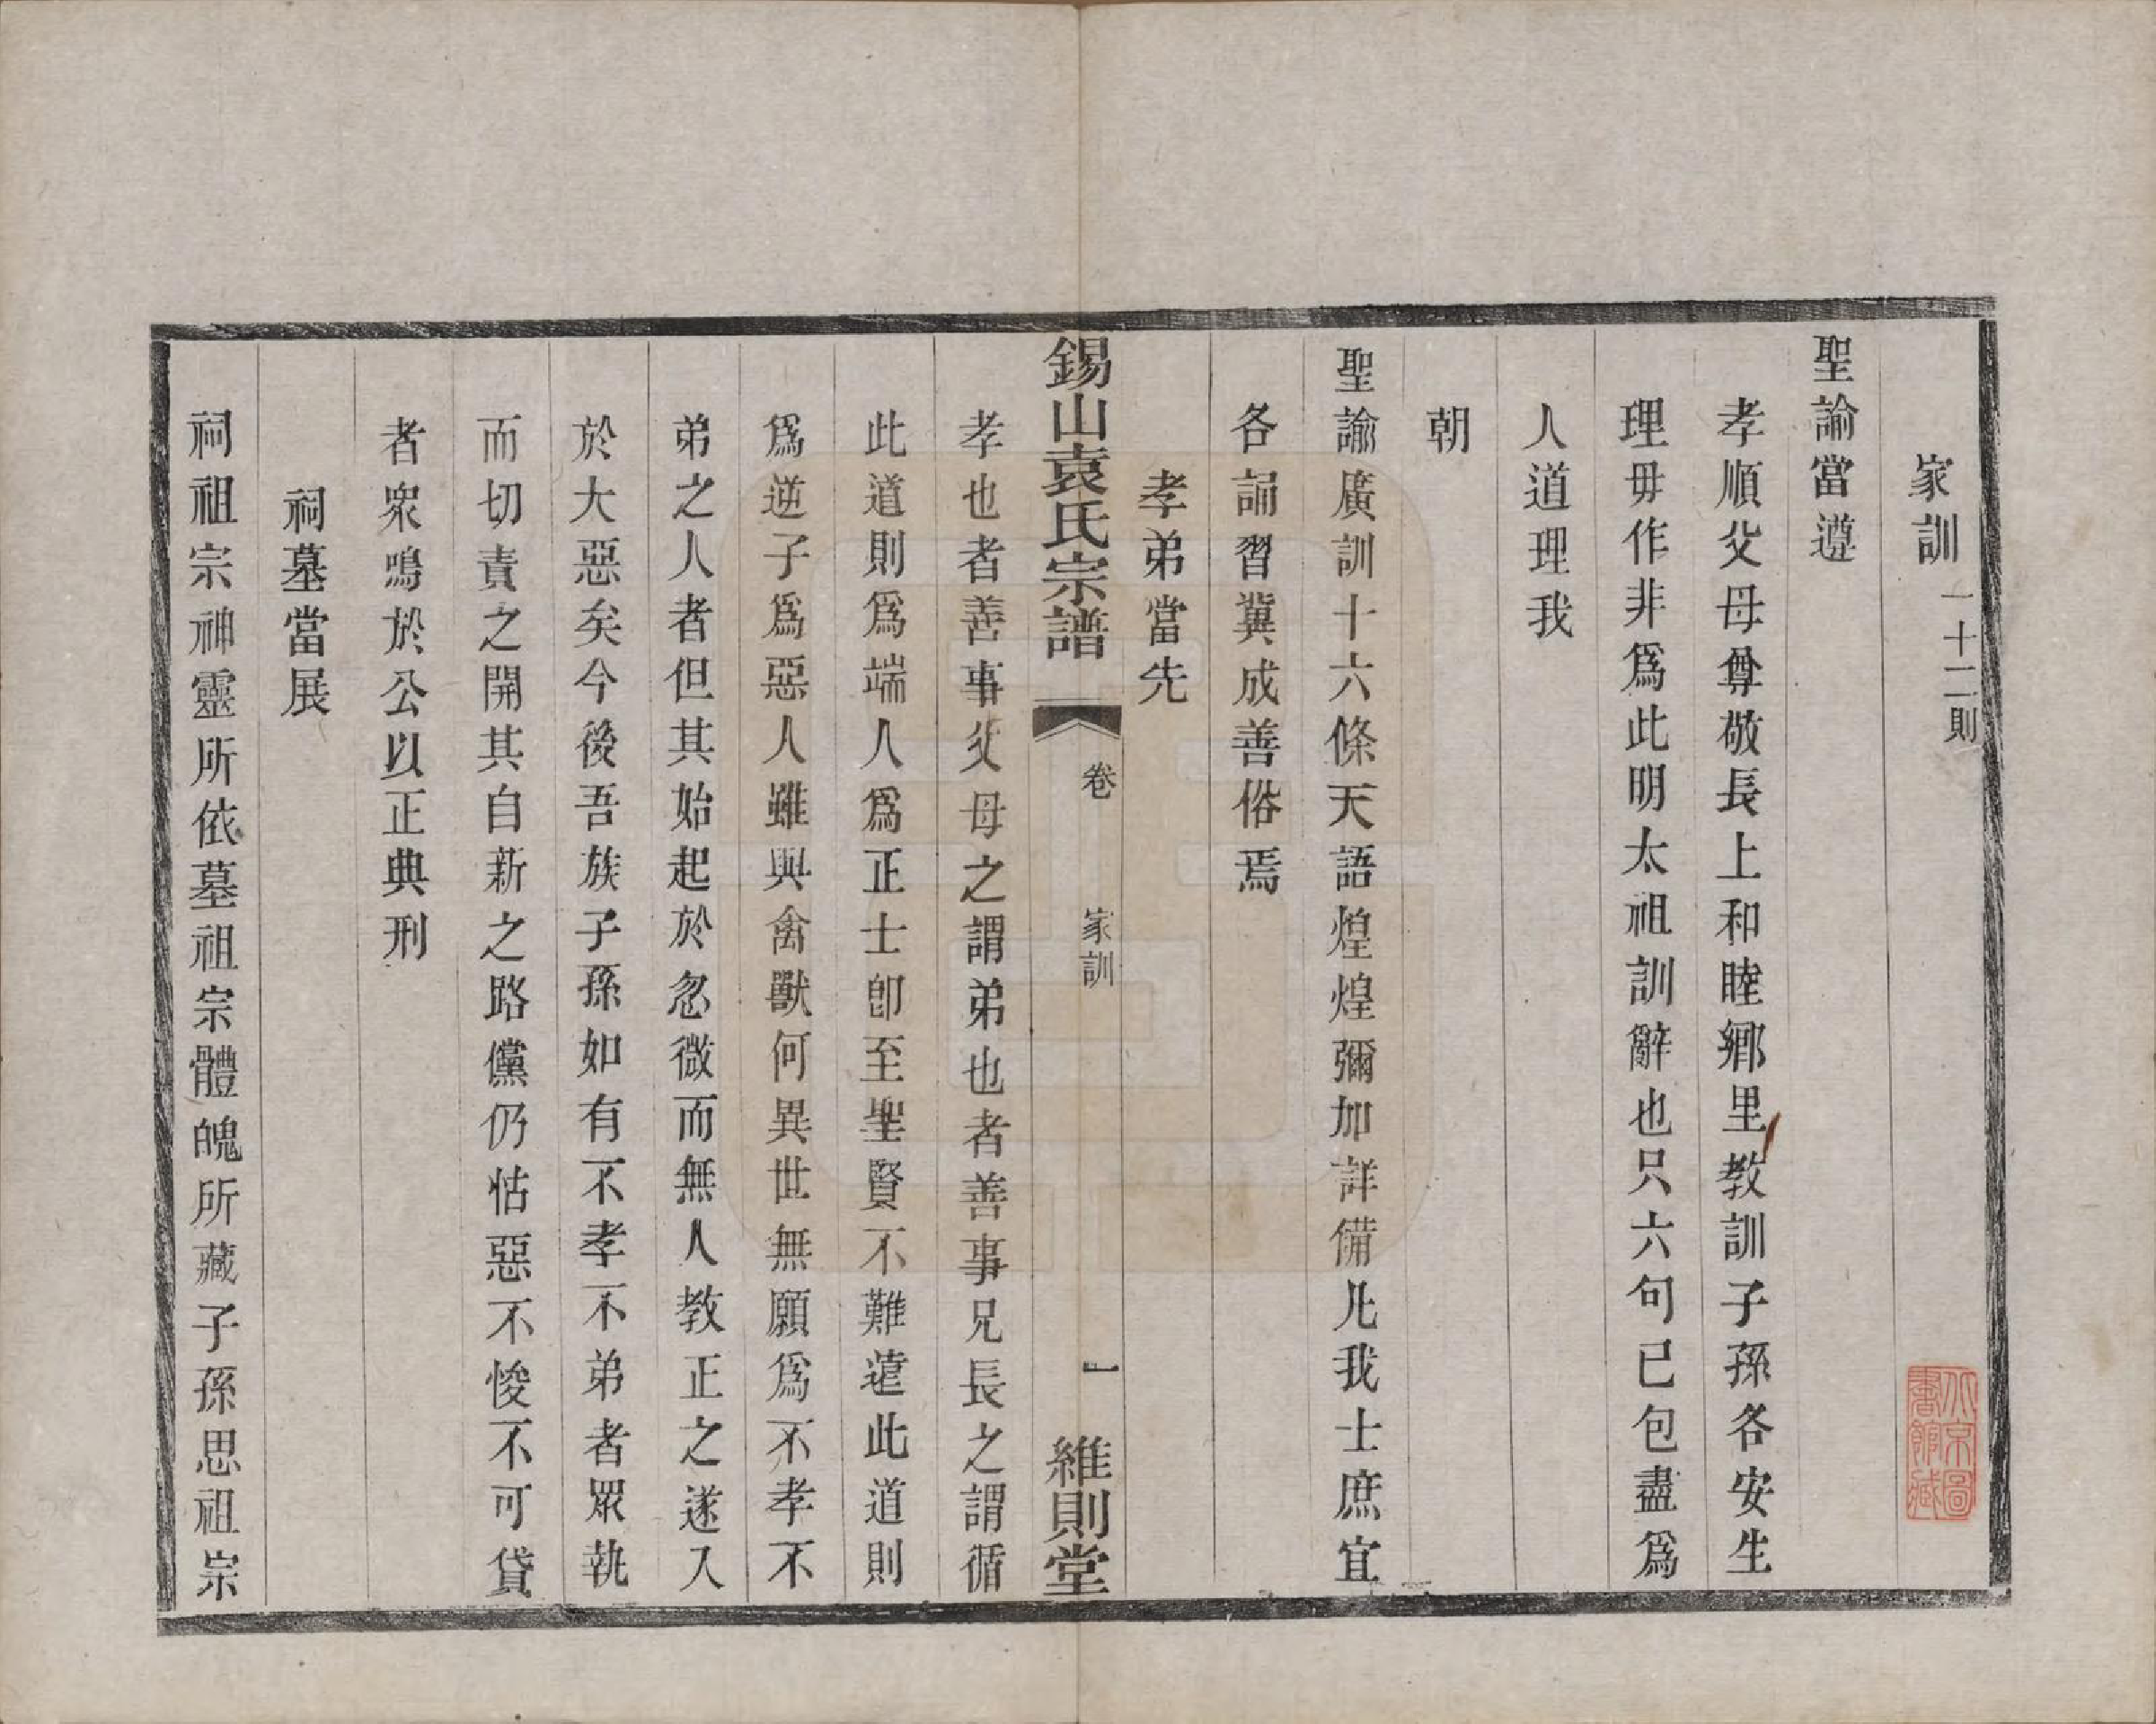 家訓 一十二則
聖諭當遵
孝順父母尊敬長上和睦鄉里教訓子孫各安生
理毋作非爲此明太祖訓辭也只六句已包盡爲
人道理我
朝
聖諭廣訓十六條天語煌煌彌加詳備凡我士庶宜
各誦習冀成善俗焉
孝弟當先
錫山袁氏宗譜 卷 家訓 一 維則堂
孝也者善事父母之謂弟也者善事兄長之謂循
此道則爲端人爲正士卽至聖賢不難遠此道則
爲逆子爲惡人雖與禽獸何異世無願爲不孝不
弟之人者但其始起於忽微而無人教正之遂入
於大惡矣今後吾族子孫如有不孝不弟者眾執
而切責之開其自新之路儻仍怙惡不悛不可貸
者衆鳴於公以正典刑
祠墓當展
祠祖宗神靈所依墓祖宗體魄所藏子孫思祖宗
北京圖
書館藏